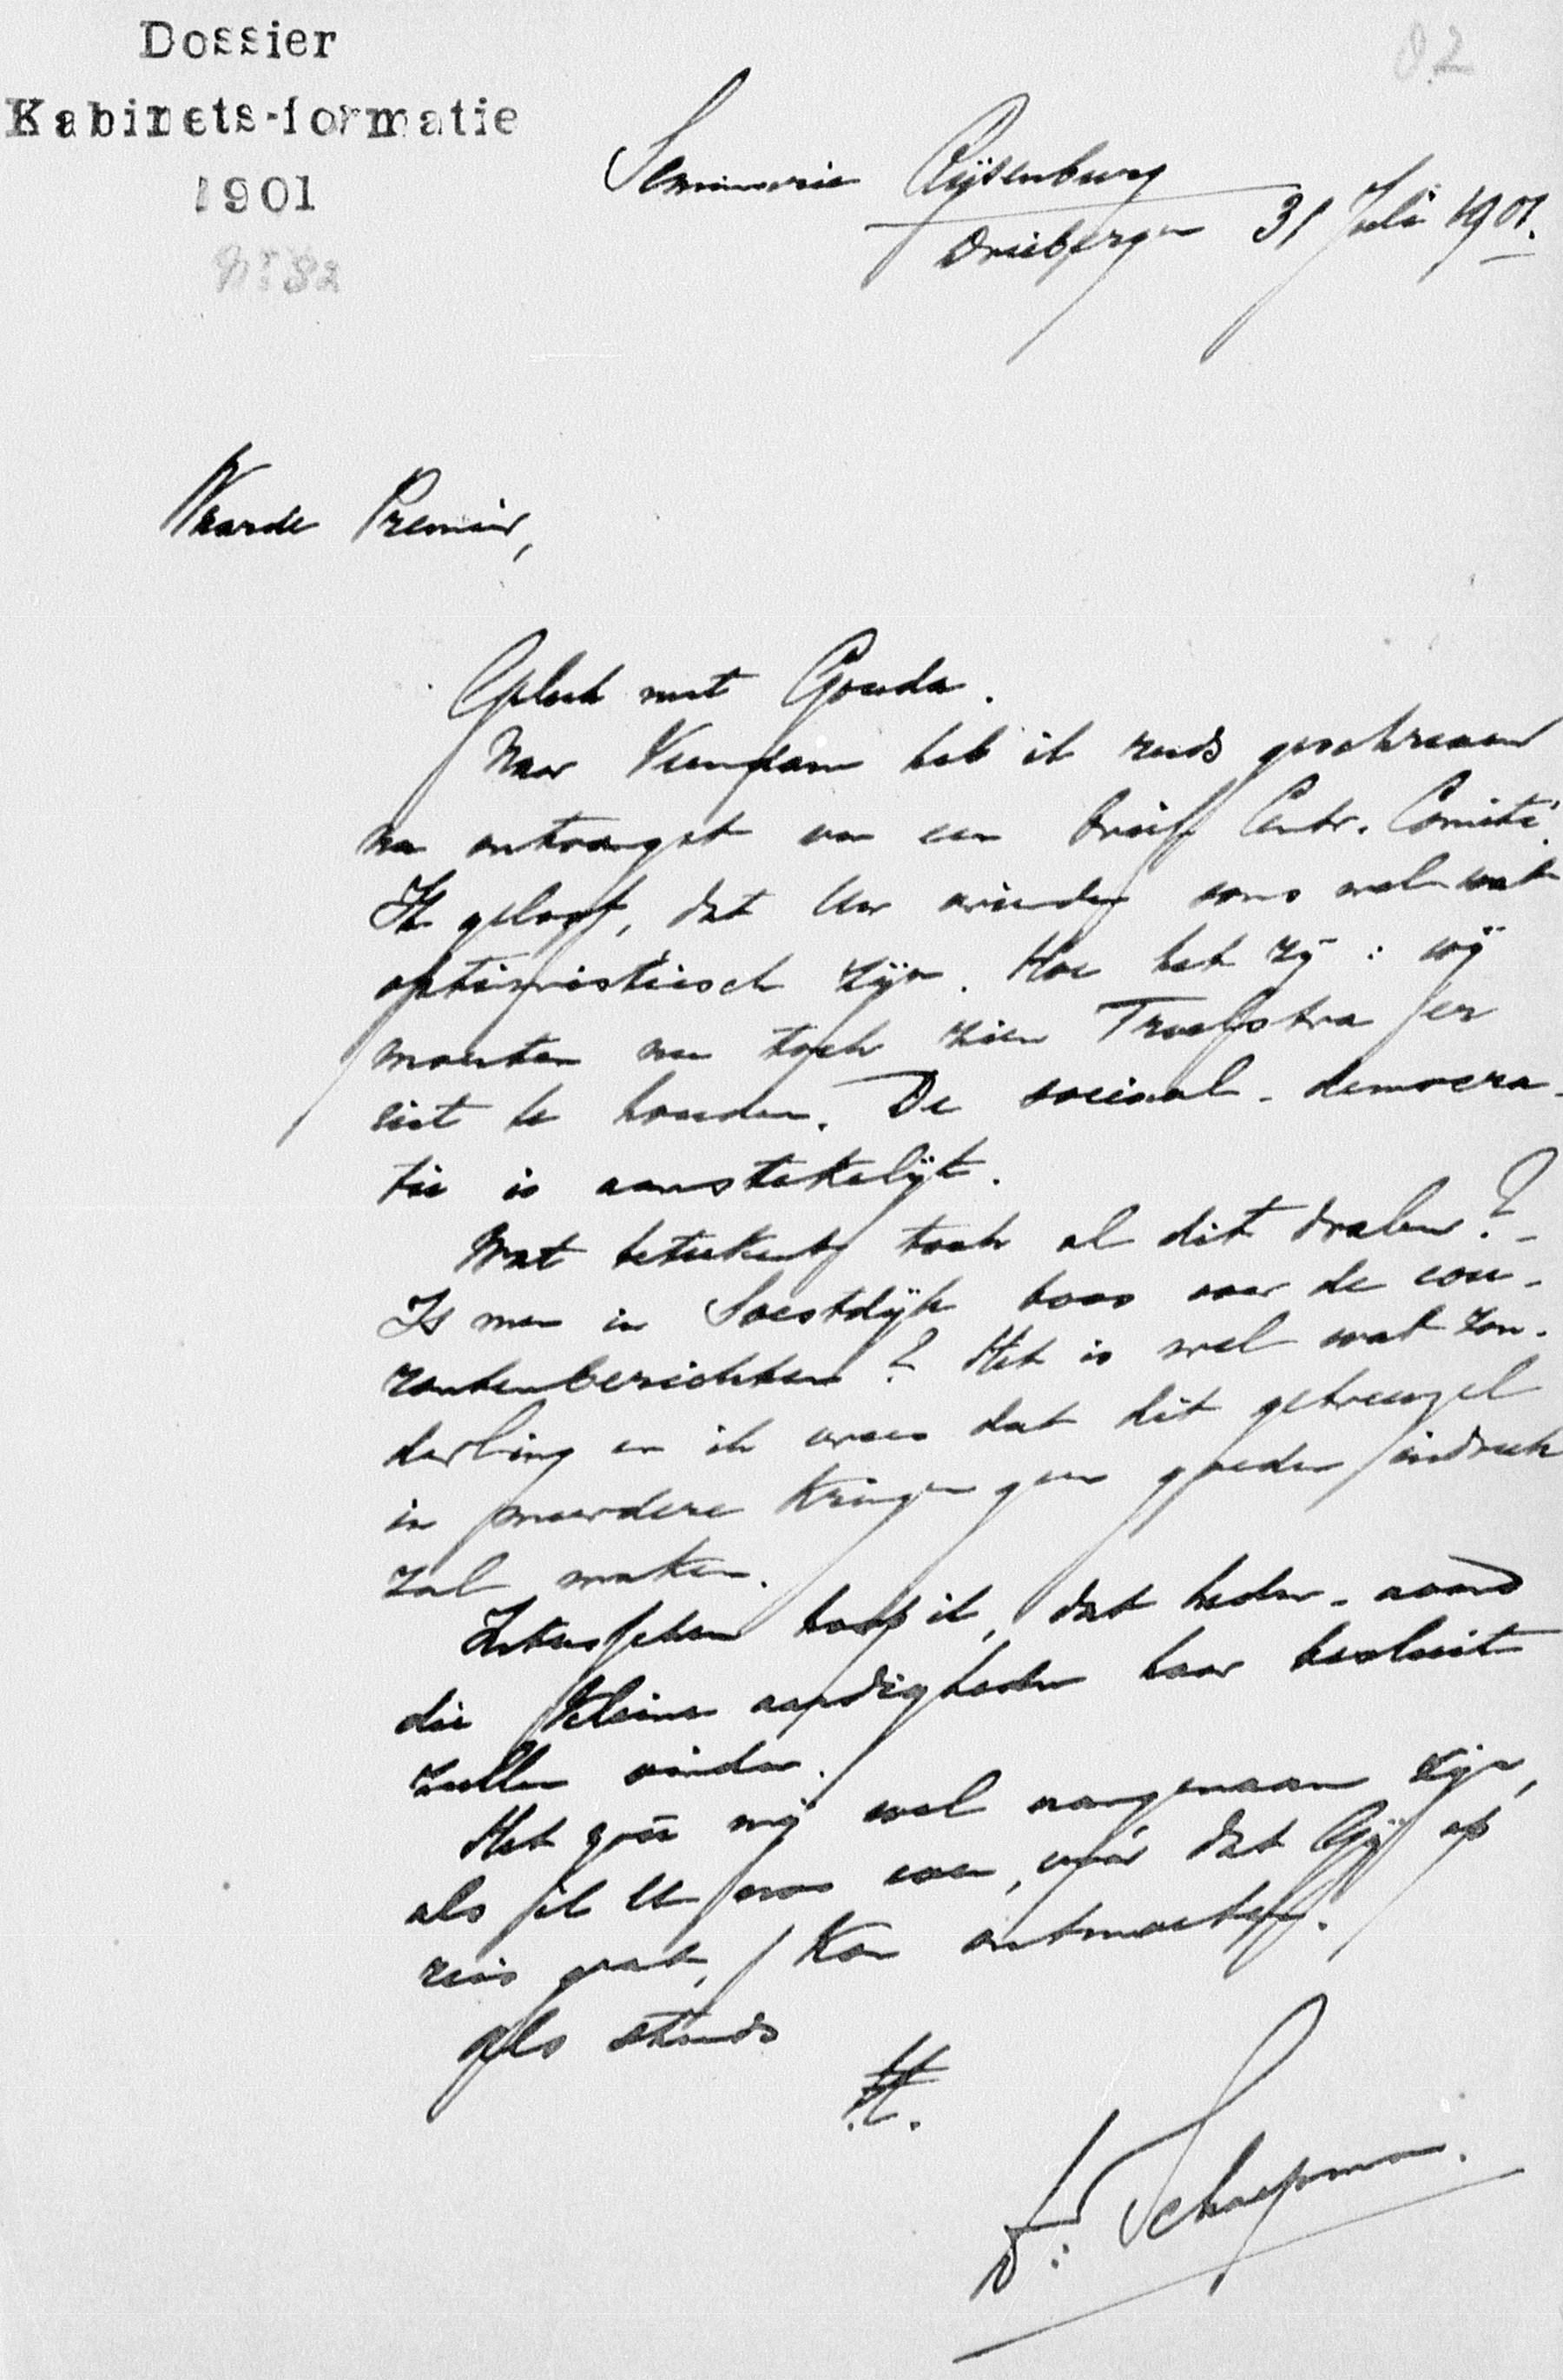 Dossier
Kabinets-formatie
1901
No 82
82
Seminarie Rijsenburg
Driebergen 31 Juli 1901.
Waarde Premier,
Geluk met Gouda.
Naar Veendam heb ik reeds geschreven
na ontvangst van een brief Centr. Comité.
Ik geloof, dat Uw vrienden soms wel wat
optimistisch zijn. Hoe het zij: wij
moeten nu toch zien Troelstra er
uit te houden. De sociaal-democra-
tie is aanstekelijk.
Wat beteekent toch al dit dralen? -
Is men in Soestdijk boos over de cou-
rantenberichten? Het is wel wat zon-
derling en ik vrees dat dit getreuzel
in meerdere kringen geen goeden indruk
zal maken.
Intusschen hoop ik, dat heden-avond
die kleine aardigheden haar besluit
zullen vinden.
Het zou mij wel aangenaam zijn,
als ik U nog eens, vóór dat Gij op
reis gaat, kon ontmoeten.
Als steeds
t.t.
Dr. Schaepman.